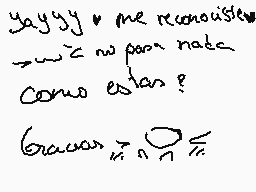 yayyy ♥ me reconociste♥
no pasa nada
como estas?
Gracias >